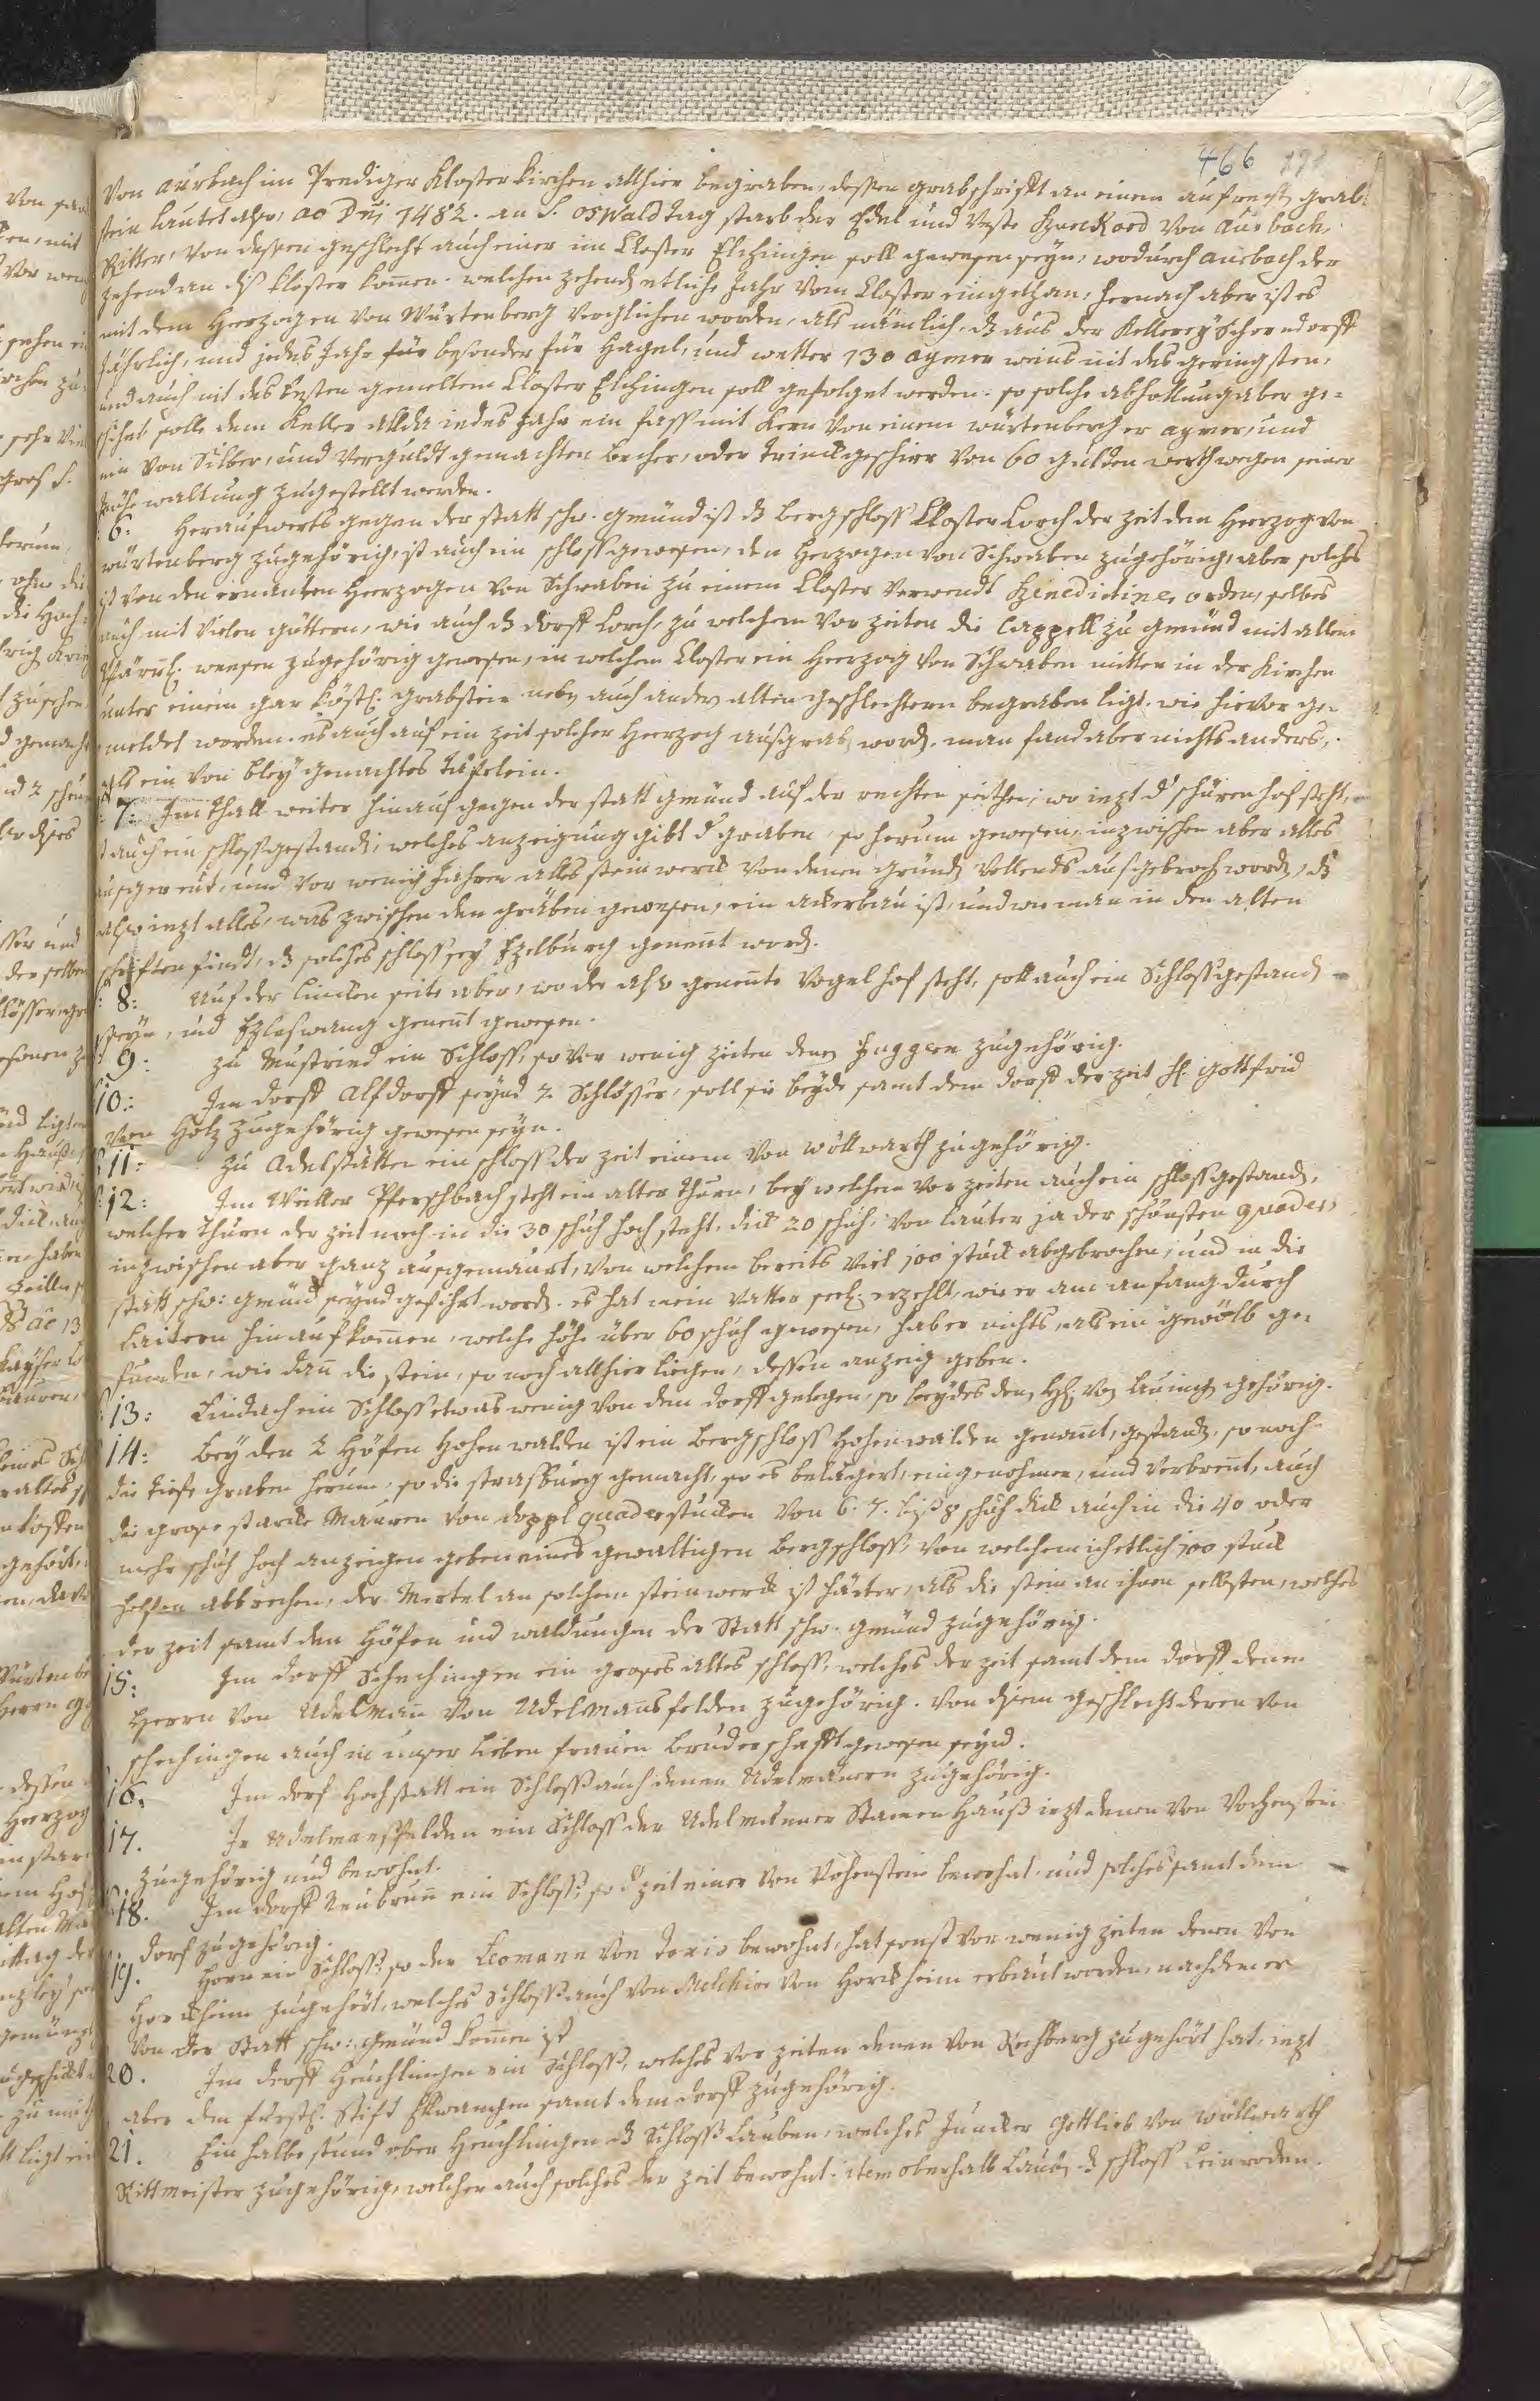 466 171
Von aurbach im Prediger Kloster Kirchen allhier begraben, dessen grabschrifft an einem aufrecht grab-
stein lautet also: ao Dni 1482. an S. osWald tag starb der Edel und Veste Von aurbach,
Ritter, Von dessen geschlecht auch einer im Closter Elchingen soll gewesen seyn, wodurch aurbach der
zehend an dß Kloster komen. welchen zehend etliche Jahr Vom Closter eingethan, hernach aber ist es
mit dem Herzogen Von Würtenberg verglichen worden, als nämlich, dß aus der Kellerey Schorndorff
Jährlich, und jedes Jahr für besonder für Hagel, und wetter 130 aymer weins nit des geringsten,
und auch nit des besten gemeltem Closter Elchingen soll gefolget werden. so solche abhollung aber ge-
schieht solle dem Keller allda iedes Jahr ein fass mit Kern Von einem würtenberger aymer, und
ein Von Silber, und Verguldt gemachten becher, oder trinckgeschirr Von 60 gulden werth wegen seiner
mühewaltung zugestellt werden.
6: Heraufwerts gegen der statt schw. gmünd ist dß bergschloss Closter Lorch der zeit dem Herzog von
würtenberg zugehörig, ist auch ein schloss gewesen, den Herzogen Von Schwaben zugehörig, aber solches
ist Von den ernanten Herzogen Von Schwaben zu einem Closter Verwendt Benedictiner orden, selbes
auch mit Vielen güttern, wie auch dß dorff Lorch, zu welchem Vor zeiten die Cappell zu gmünd mit allem
Pfarrl: weesen zugehörig gewesen, in welchem Closter ein Herzog Von Schwaben mitten in der Kirchen
unter einem gar köstl: grabstein neben auch andern alten geschlechtern begraben ligt. wie hievor ge-
meldet worden. ist auch auf ein zeit solcher Herzog ausgrab worden. man fand aber nichts anders,
als ein Von bley gemachtes täfelein.
7: Im thall weiter hinauf gegen der statt gmünd auf der rechten seithen, wo iezt d schürenhof steht,
ist auch ein schloss gestanden, welches anzeigung gibt d graben, so herum gewesen, inzwischen aber alles
ausgereut, und Vor wenig Jahren alles steinwerck Von denen gründen Vollends ausgebroch worden, dß
also iezt alles, was zwischen den gräben gewesen, ein ackerbau ist, und wie man in den alten
schrifften findt, dß solches schloss sey Ezelburg genent worden.
8: Auf der lincken seite aber, wo der also genente Vogelhof steht, soll auch ein Schloss gestanden
seyn, und Ezlaswang genent gewesen.
9: zu Mustried ein Schloss, so Vor wenig zeiten denen Fuggern zugehörig.
10: Im dorff Alfdorff seynd 2. Schlösser, soll sie beyde samt dem dorff der zeit H: gottfrid
Von Holz zugehörig gewesen seyn.
11: zu Adelstätten ein schloss der zeit einem Von wöllwarth zugehörig.
12: Im Weiller Pferschbach steht ein alter thurn, bey welchem Vor zeiten auch ein schloss gestanden,
welcher thurn der zeit noch in die 30 schuh hoch steht, dick 20 schuh, Von lauter ja der schönsten quader,
inzwischen aber ganz ausgemaurt, Von welchem bereits Viel 100 stuck abgebrochen, und in die
statt schw: gmünd seynd geführt worden. es hat mein Vatter seel: erzehlt, wie er am anfang durch
laitern hinauf komen, welche höhe über 60 schuh gewesen, hab er nichts, als ein gewölb ge-
funden, wie dan die stein, so noch allhier ligen, dessen anzeig geben.
13: Lindach ein Schloss etwas wenig Von dem dorff gelegen, so beydes den Hh: Von Lauing gehörig.
14: Bey den 2 Höfen Hohenwalden ist ein bergschloss Hohenwalden genant, gestanden, so noch
die tiefe graben herum, so die strassburg gemacht, so es belägert, eingenohmen, und Verbrent, auch
die grosse starcke Mauren Von doppl quaderstucken Von 6. 7. biß 8 schuh dick auch in die 40 oder
mehr schuh hoch anzeigen geben eines gewaltigen bergschloss, Von welchem ich etlich 100 stuck
helffen abbrechen, der Mertel an solchem steinwerck ist härter, als die stein an ihnen selbsten, welches
der zeit samt den Höfen und waldungen der Statt schw. gmünd zugehörig.
15: Im dorff Schechingen ein grosses altes schloss, welches der zeit samt dem dorff denen
Herrn Von Adelman Von Adelmansfelden zugehörig. Von disem geschlecht deren Von
schechingen auch in unser lieben frauen bruderschafft gewesen seynd.
16: Im dorf Hochstatt ein Schloss auch denen Adelmänern zugehörig.
17. In Adelmansfelden ein Schloss der Adelmäner Stamen Hauß iezt denen Von Vohenstein
zugehörig und bewohnt.
18. Im dorff Neubrun ein Schloss, so d zeit einer Von Vohenstein bewohnt, und solches samt dem
dorf zugehörig.
19. Horn ein Schloss, so der Leomann Von Toxis bewohnt, hat sonst Vor wenig zeiten denen Von
Horckheim zugehört, welches Schloss auch Von Melchior Von Horckheim erbaut worden, nachdem er
Von der Statt schw: gmünd komen ist
20. Im dorff Heuchlingen ein Schloss, welches Vor zeiten denen Von Rechberg zugehört hat, iezt
aber dem fürstl: Stift Elwangen samt dem dorff zugehörig.
21. Ein halbe stund ober Heuchlingen dß Schloss Lauben, welches Juncker Gottlieb Von wöllwarth
Rittmeister zugehörig, welcher auch solches der zeit bewohnt. item oberhalb Lauben dß schloss Leinroden.